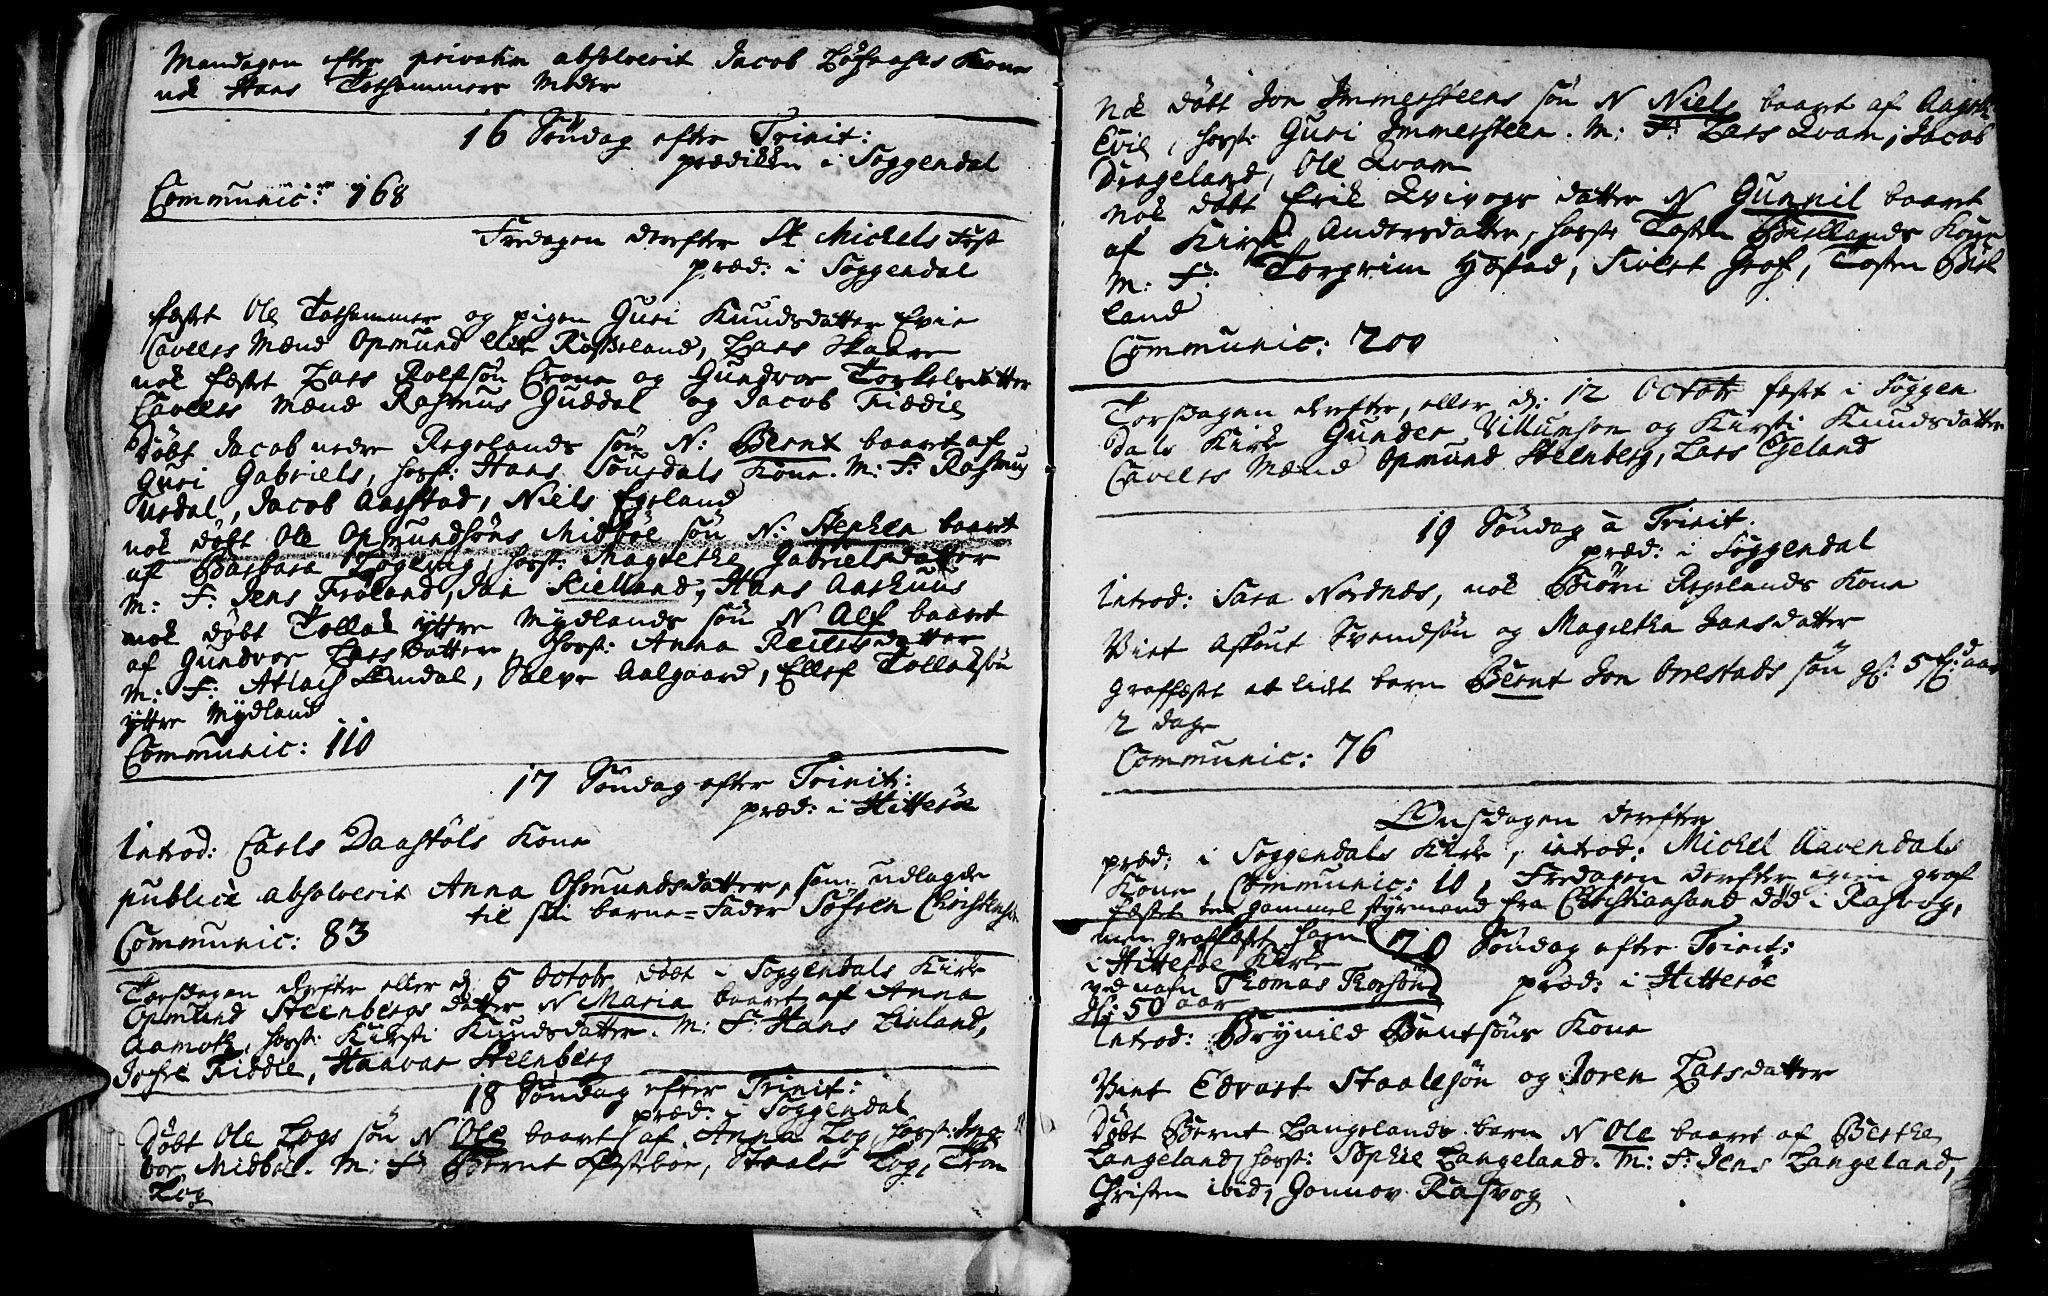 Mandagen efter privatim absolverit Jacob Kone
nok Hans Tothammers Moder
16 Søndag efter Trinit:
prædiken i Soggendal
Communic: 168
Fredagen derefter St Michels Fest
præd: i Soggendal
fæstet Ole Tothammer og pigen Guri Knudsdatter Evie
Caveers Mænd Opmund Rosseland, Lars Skaare
nok fæstet Lars Rolfsøn Crona og Gundvor Torkelsdatter
Caveers Mænd Rasmus Guddal og Jacob Fiddie
Døbt Jacob nedre Regelands søn N: Bernt baaret af
Guri Gabriels, horst: Hans Sønsdals Kone. M: F: Rasmus
Urdal, Jacob Aarstad, Niels Egeland
nok døbt Ole Opmundsøns Midbøe søn N: Stephen baaret
af Barbara Fogling, horst: Magrethe Gabrielsdatter
M: F: Jens Frøland, Jan Kielland, Hans Aarhuus
nok døbt Tollak yttre Mydlands søn N Alf baaret
af Gundvor Larsdatter, horst: Anna Reiersdatter
M: F: Atlach Omdal, Salve Aalgaard, Ellef Tollaksøn
yttre Mydland
Communic: 110
17 Søndag efter Trinit:
præd: i Hitterøe
Introd: Carls Daastøls Kone
publicè absolverit Anna Osmundsdatter, som udlagde
til sin barne-Fader Søfren Christensøn
Communic: 83
Torsdagen derefter eller d. 5 Octobr døbt i Soggendals Kirke
Opmund Steenbergs datter N Maria baaret af Anna
Aamoth, horst: Kirsti Knudsdatter. M: F: Hans Linland,
Josse Fiddie, Haavar Steenberg
18 Søndag efter Trinit:
præd: i Soggendal
Døbt Ole Logs søn N Ole baaret af Anna Log, horst: Ing
bor Midbøe. M: F: Bernt Østbøe, Staale Log, Tron
Log
Nok døbt Jon Immersteens søn N Niels baaret af Aagot
Evie, horst: Guri Immersteen. M: F: Lars Qvam, Jacob
Drageland, Ole Qvam
Nok døbt Erik Qvivogs datter N Gunnil baaret
af Kirsti Andersdatter, horst: Tosten Birklands Kone
M: F: Torgrim Høstad, Sivert Grøf, Tosten Birk
land
Communic: 200
Torsdagen derefter, eller d: 12 Octobr fæstet i Soggen
dals Kirke Gunder Villumsøn og Kirsti Knudsdatter
Caveers Mænd Opmund Steenberg, Lars Egeland
19 Søndag a Trinit:
præd: i Soggendal
Introd: Sara Nordnes, nok Biørn Regelands Kone
Viet Asfout Svendsøn og Magretha Jansdatter
Graffæstet et lidt barn Bernt Jon Orrestads søn gl: 5 fierd: aar
2 dage
Communic: 76
Onsdagen derefter
præd: i Soggendals Kirke, introd: Michel Aavendals
Kone, Communic: 10, Fredagen derefter igien graf
fæstet en gammel styrmand fra Christiansand død i Rasvog,
men graffæstet ham
i Hitterøe Kirke
ved nafn Thomas Thorsøn
gl: 50 aar
20 Søndag efter Trinit:
præd: i Hitterøe
Introd: Brynild Berntsøns Kone
Viet Edvart Staalesøn og Joren Larsdatter
Døbt Bernt Langelands barn N Ole baaret af Berthe
Langeland, horst: Sophie Langeland. M: F: Jens Langeland,
Christen ibid, Gonnov Rasvog